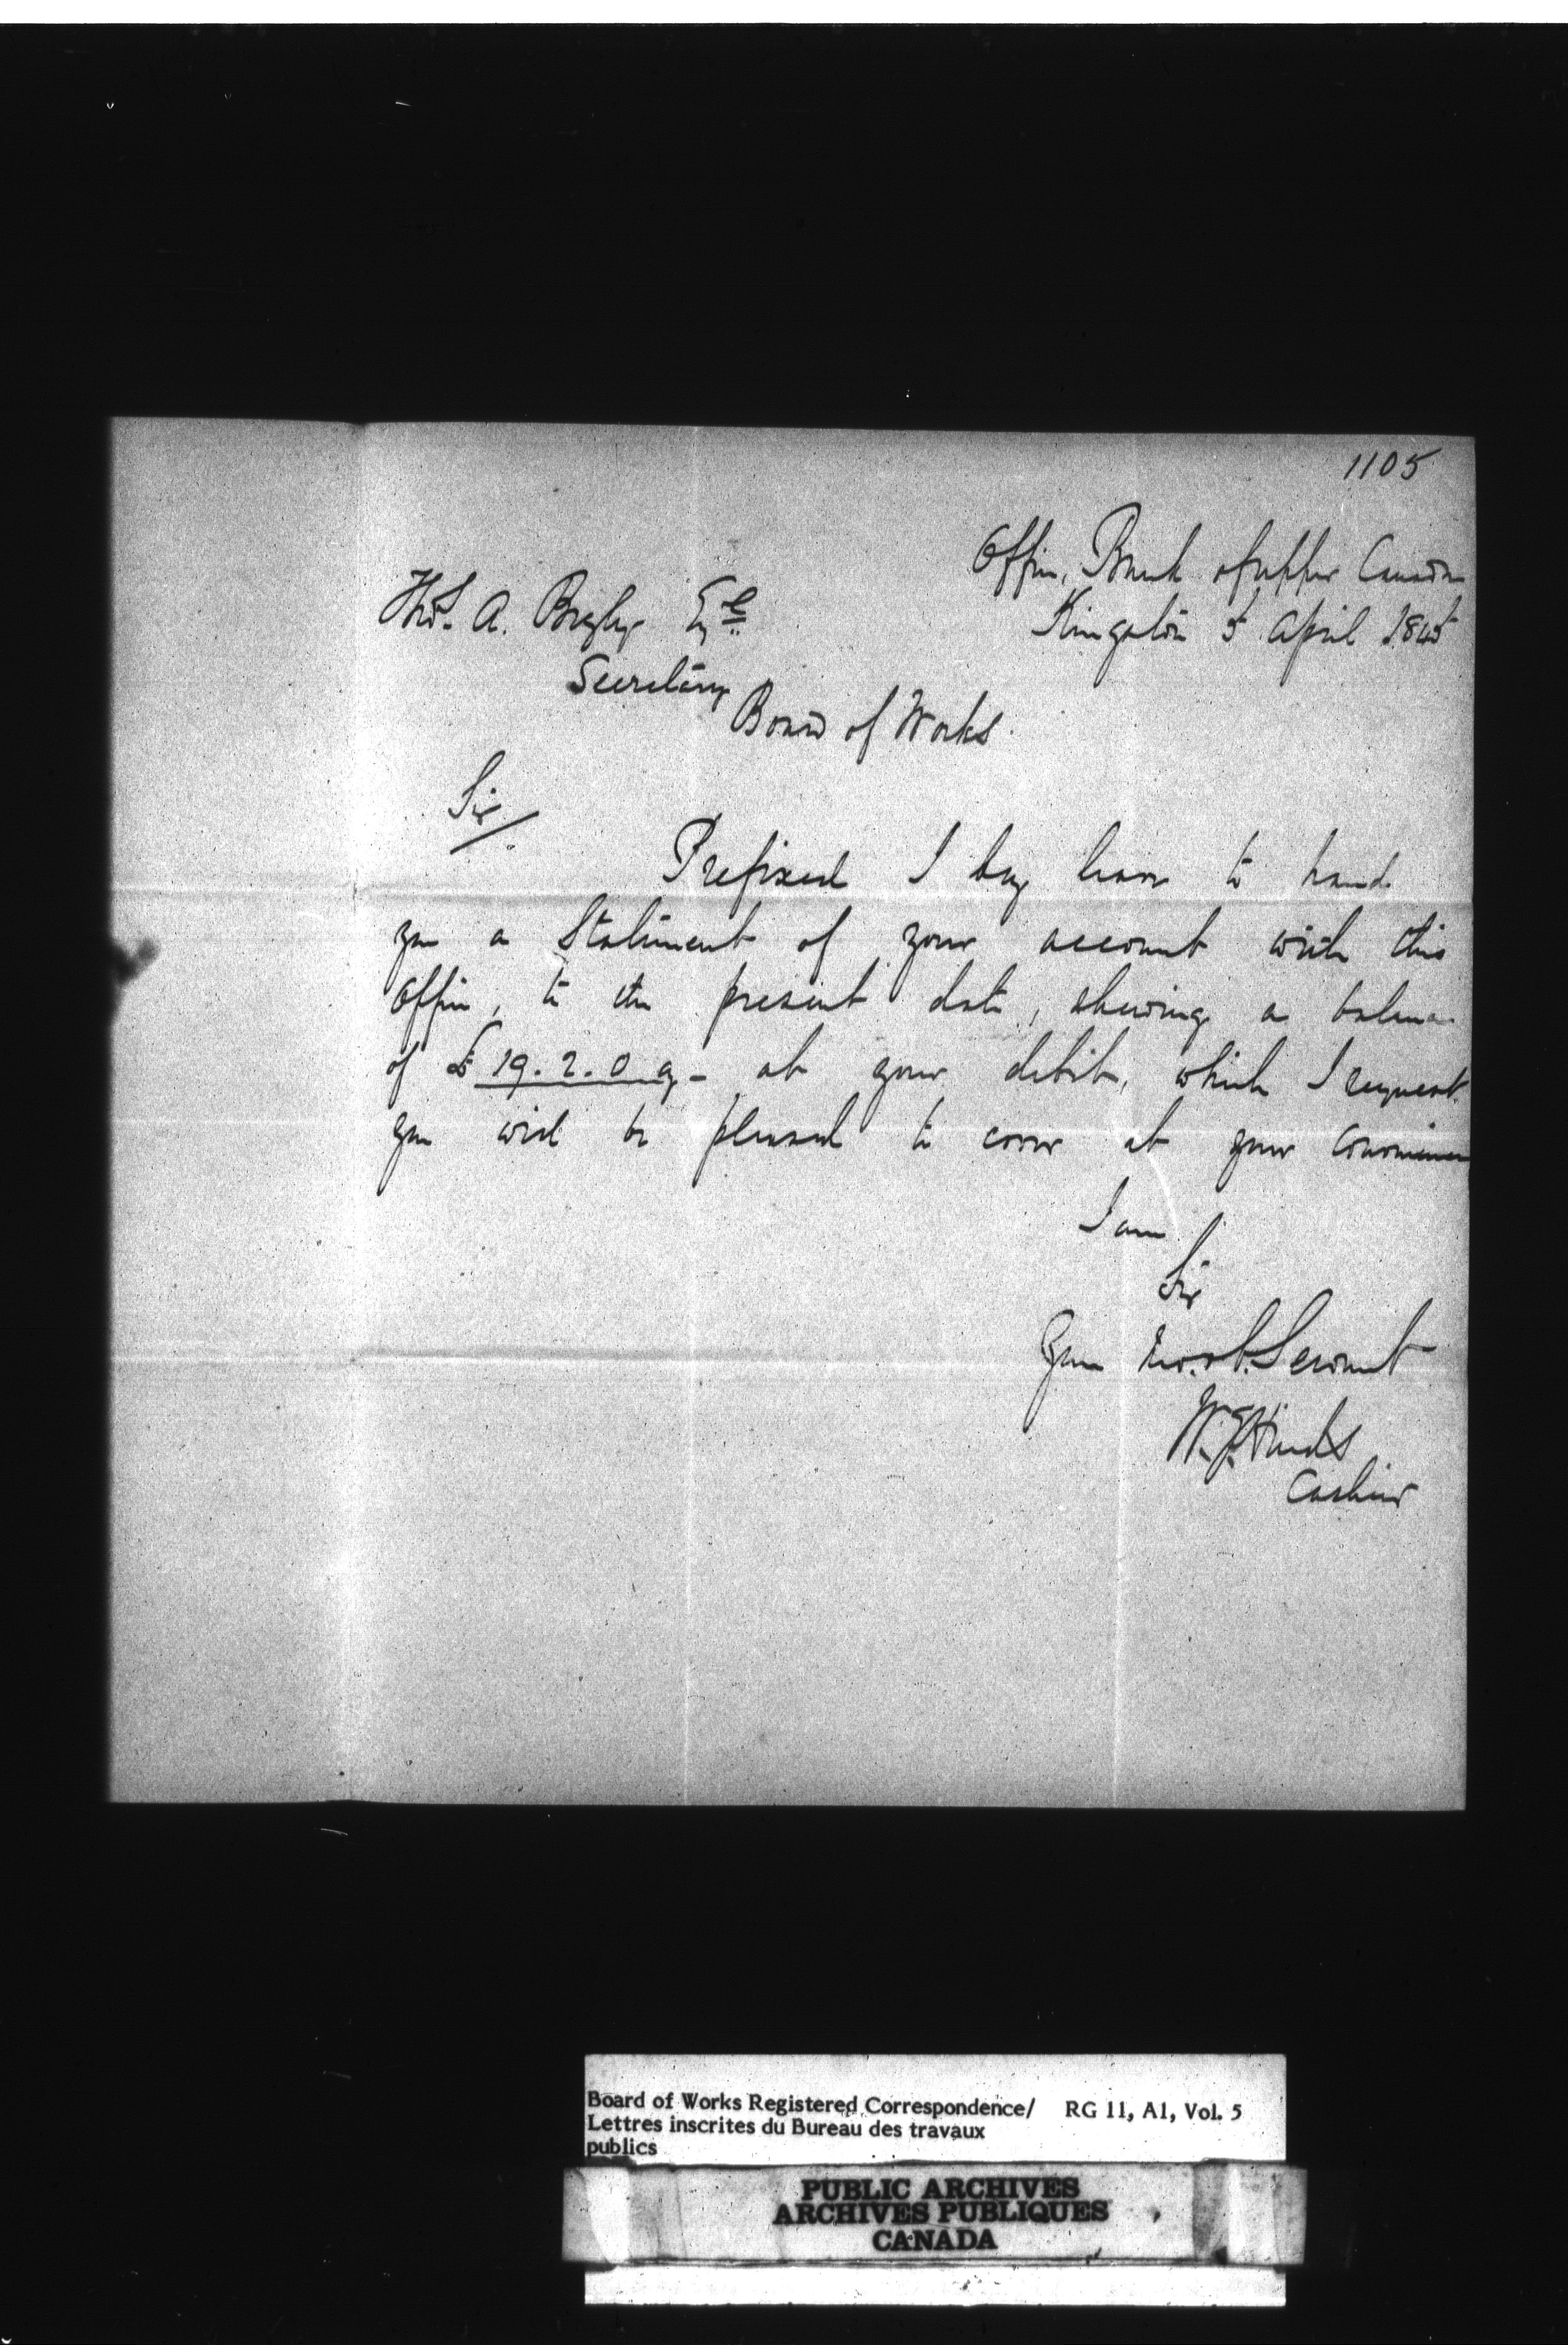 1105
Office, Bank of Upper Canada
Kingston 5 April 1845
Thos. A. Begly Esqe
Secretary
Board of Works.
Sir
Prefixed I beg leave to hand
you a Statement of your account with this
Office, to the present date, shewing a balance
of £19.2.0 Cy - at your debit, which I request
you will be pleased to cover at your convenience
I am
Sir
Your Mo. ob. Servant
W. Hinds
Cashier
Board of Works Registered Correspondence/ RG 11, A1, Vol. 5
Lettres inscrites du Bureau des travaux
publics
PUBLIC ARCHIVES
ARCHIVES PUBLIQUES
CANADA